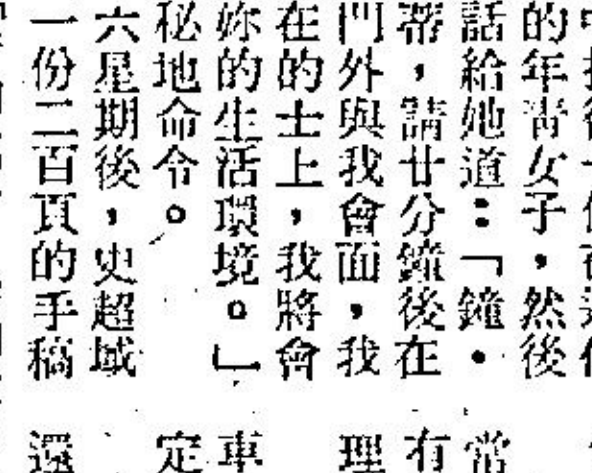 的年青女子，然後
話給她道：「鐘·
蒂，請廿分鐘後在
門外與我會面，我
在的士上，我將會
妳的生活環境。」
秘地命令。
六星期後，史超域
一份二百頁的手稿
常
有
理
車
定
還